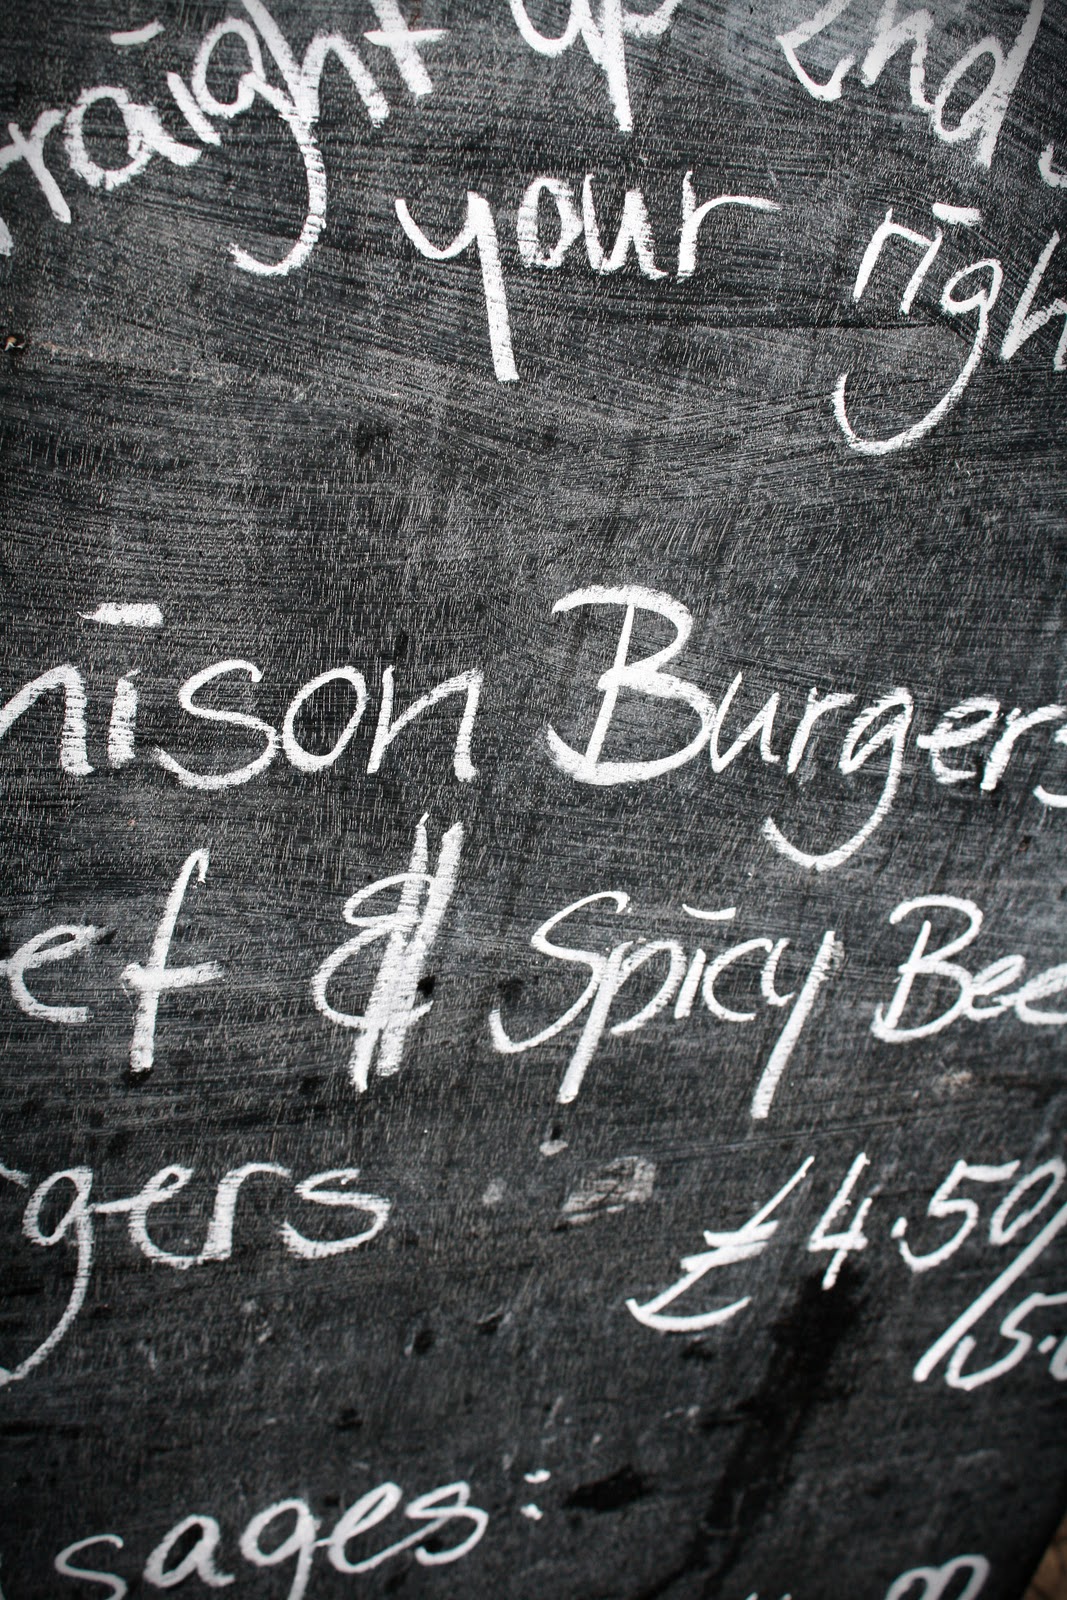 raight up 2nd
your righ
nison Burgers
ef & Spicy Bee
gers £4.50/
/5.
sages: